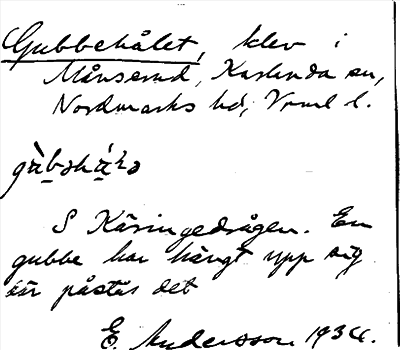 Gubbehålet, klev i
Månserud, Karlanda sn,
Nordmarks hd, Vrml l.
S Käringedrågen. En
gubbe har hängt upp sig
där påstås det
E. Andersson 1934.